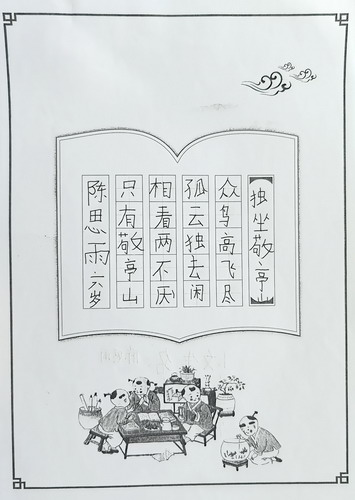 独坐敬亭山
众鸟高飞尽
孤云独去闲
相看两不厌
只有敬亭山
陈思雨 六岁